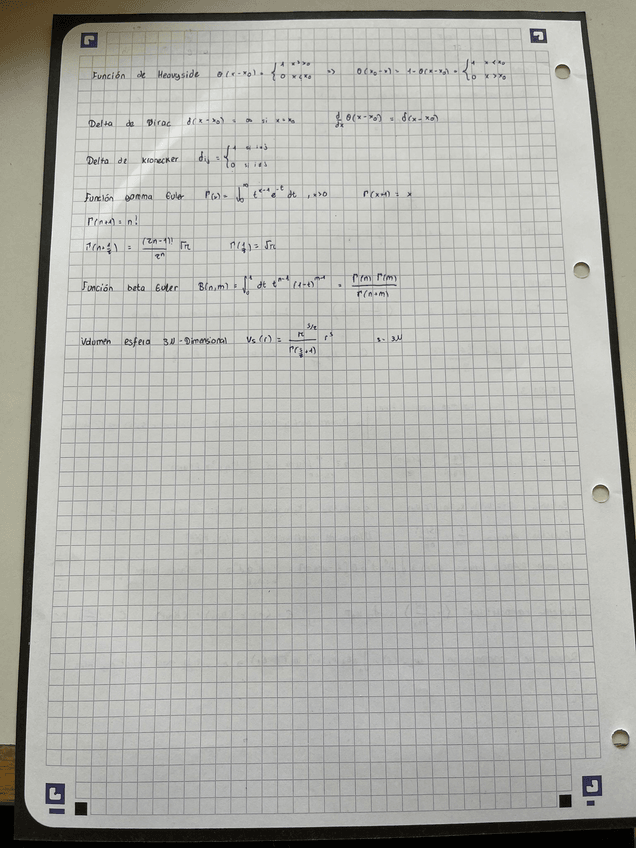 Función de Heavyside θ(x-x₀) = { 1 x>x₀ 0 x<x₀ => θ(x₀-x) = 1-θ(x-x₀) = { 1 x<x₀ 0 x>x₀
Delta de Dirac δ(x-x₀) = ∞ si x=x₀ d/dx θ(x-x₀) = δ(x-x₀)
Delta de Kronecker δᵢⱼ = { 1 si i=j 0 si i≠j
Función gamma Euler Γ(x) = ∫₀^∞ t^(x-1) e^(-t) dt , x>0 Γ(x+1) = x
Γ(n+1) = n!
Γ(n+1/2) = (2n-1)!/2ⁿ √π Γ(1/2) = √π
Función beta Euler B(n,m) = ∫₀¹ dt t^(n-1) (1-t)^(m-1) = Γ(n) Γ(m)/Γ(n+m)
Volumen esfera 3N-Dimensional Vs(r) = π^(s/2)/Γ(s/2+1) r^s s=3N